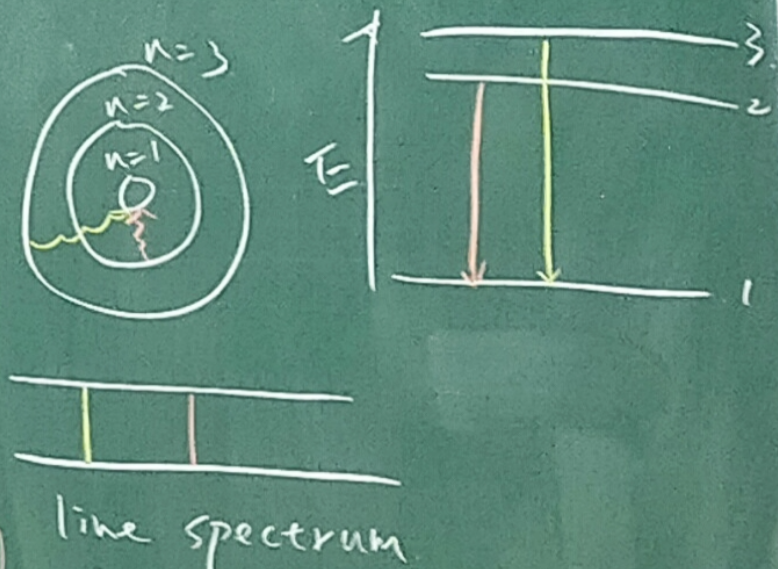 n=3
n=2
n=1
E
3
2
1
line spectrum